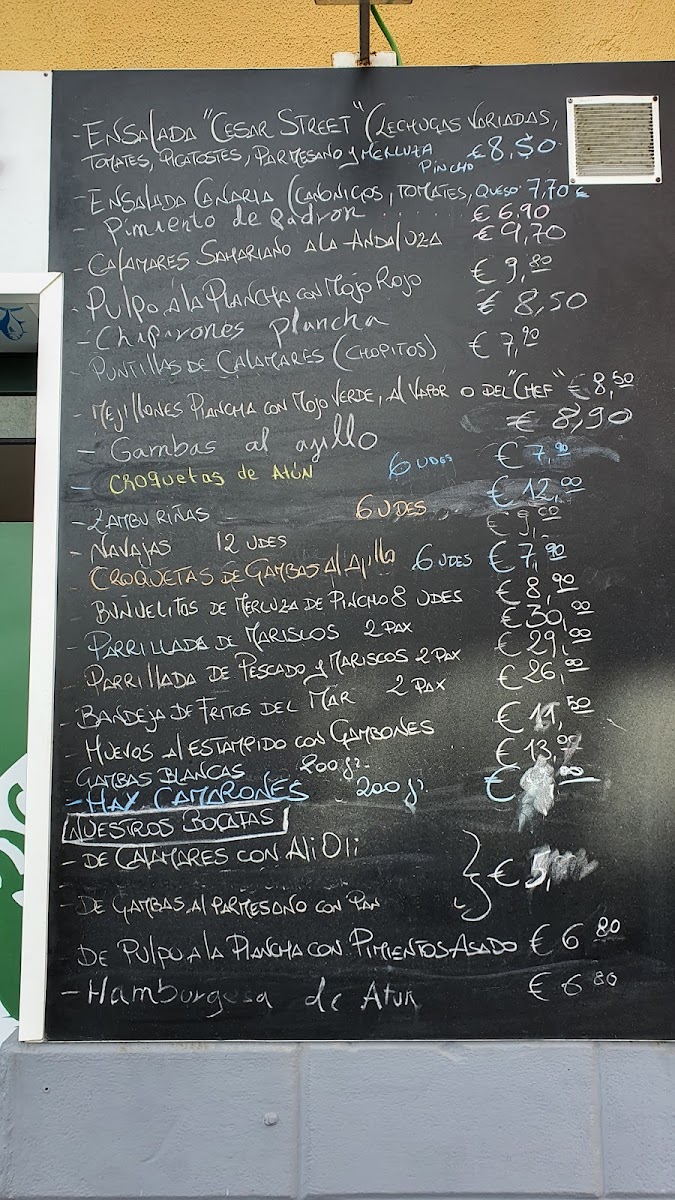 - ENSALADA "CESAR STREET" (LECHUGAS VARIADAS,
TOMATES, PICATOSTES, PARMESANO y MERLUZA PINCHO €8,50
- ENSALADA CANARIA (CANONIGOS, TOMATES, QUESO 7,70 €
- Pimiento de Padron ...... € 6,90
- CALAMARES SAHARIANO A LA ANDALUZA € 9,70
- PULPO A LA PLANCHA CON MOJO ROJO € 9,80
- Chipirones plancha € 8,50
- PUNTILLAS DE CALAMARES (CHOPITOS) € 7,90
- MEJILLONES PLANCHA CON MOJO VERDE, AL VAPOR O DEL "CHEF" € 8,50
- Gambas al ajillo € 8,90
- CROQUETAS DE ATÚN 6 UDES € 7,90
- ZAMBURIÑAS 6 UDES € 12,00
- NAVAJAS 12 UDES €
- CROQUETAS DE GAMBAS Al Ajillo 6 UDES € 7,90
- BUÑUELITOS DE MERLUZA DE PINCHO 8 UDES € 8,90
- PARRILLADA DE MARISCOS 2 PAX € 30,00
- PARRILLADA DE PESCADO y MARISCOS 2 PAX € 29,00
- BANDEJA DE FRITOS DEL MAR 2 PAX € 26,00
HUEVOS AL ESTAMPIDO CON GAMBONES € 11,50
- GAMBAS BLANCAS 200 gr. € 13,00
- HAY CAMARONES 200 gr. €
NUESTROS BOCATAS
- DE CALAMARES CON AliOli
€ 5,
- DE GAMBAS AL PARMESANO CON PAN
DE PULPO A LA PLANCHA CON PIMIENTOS ASADO € 6 80
- Hamburgesa de Atun € 6 80